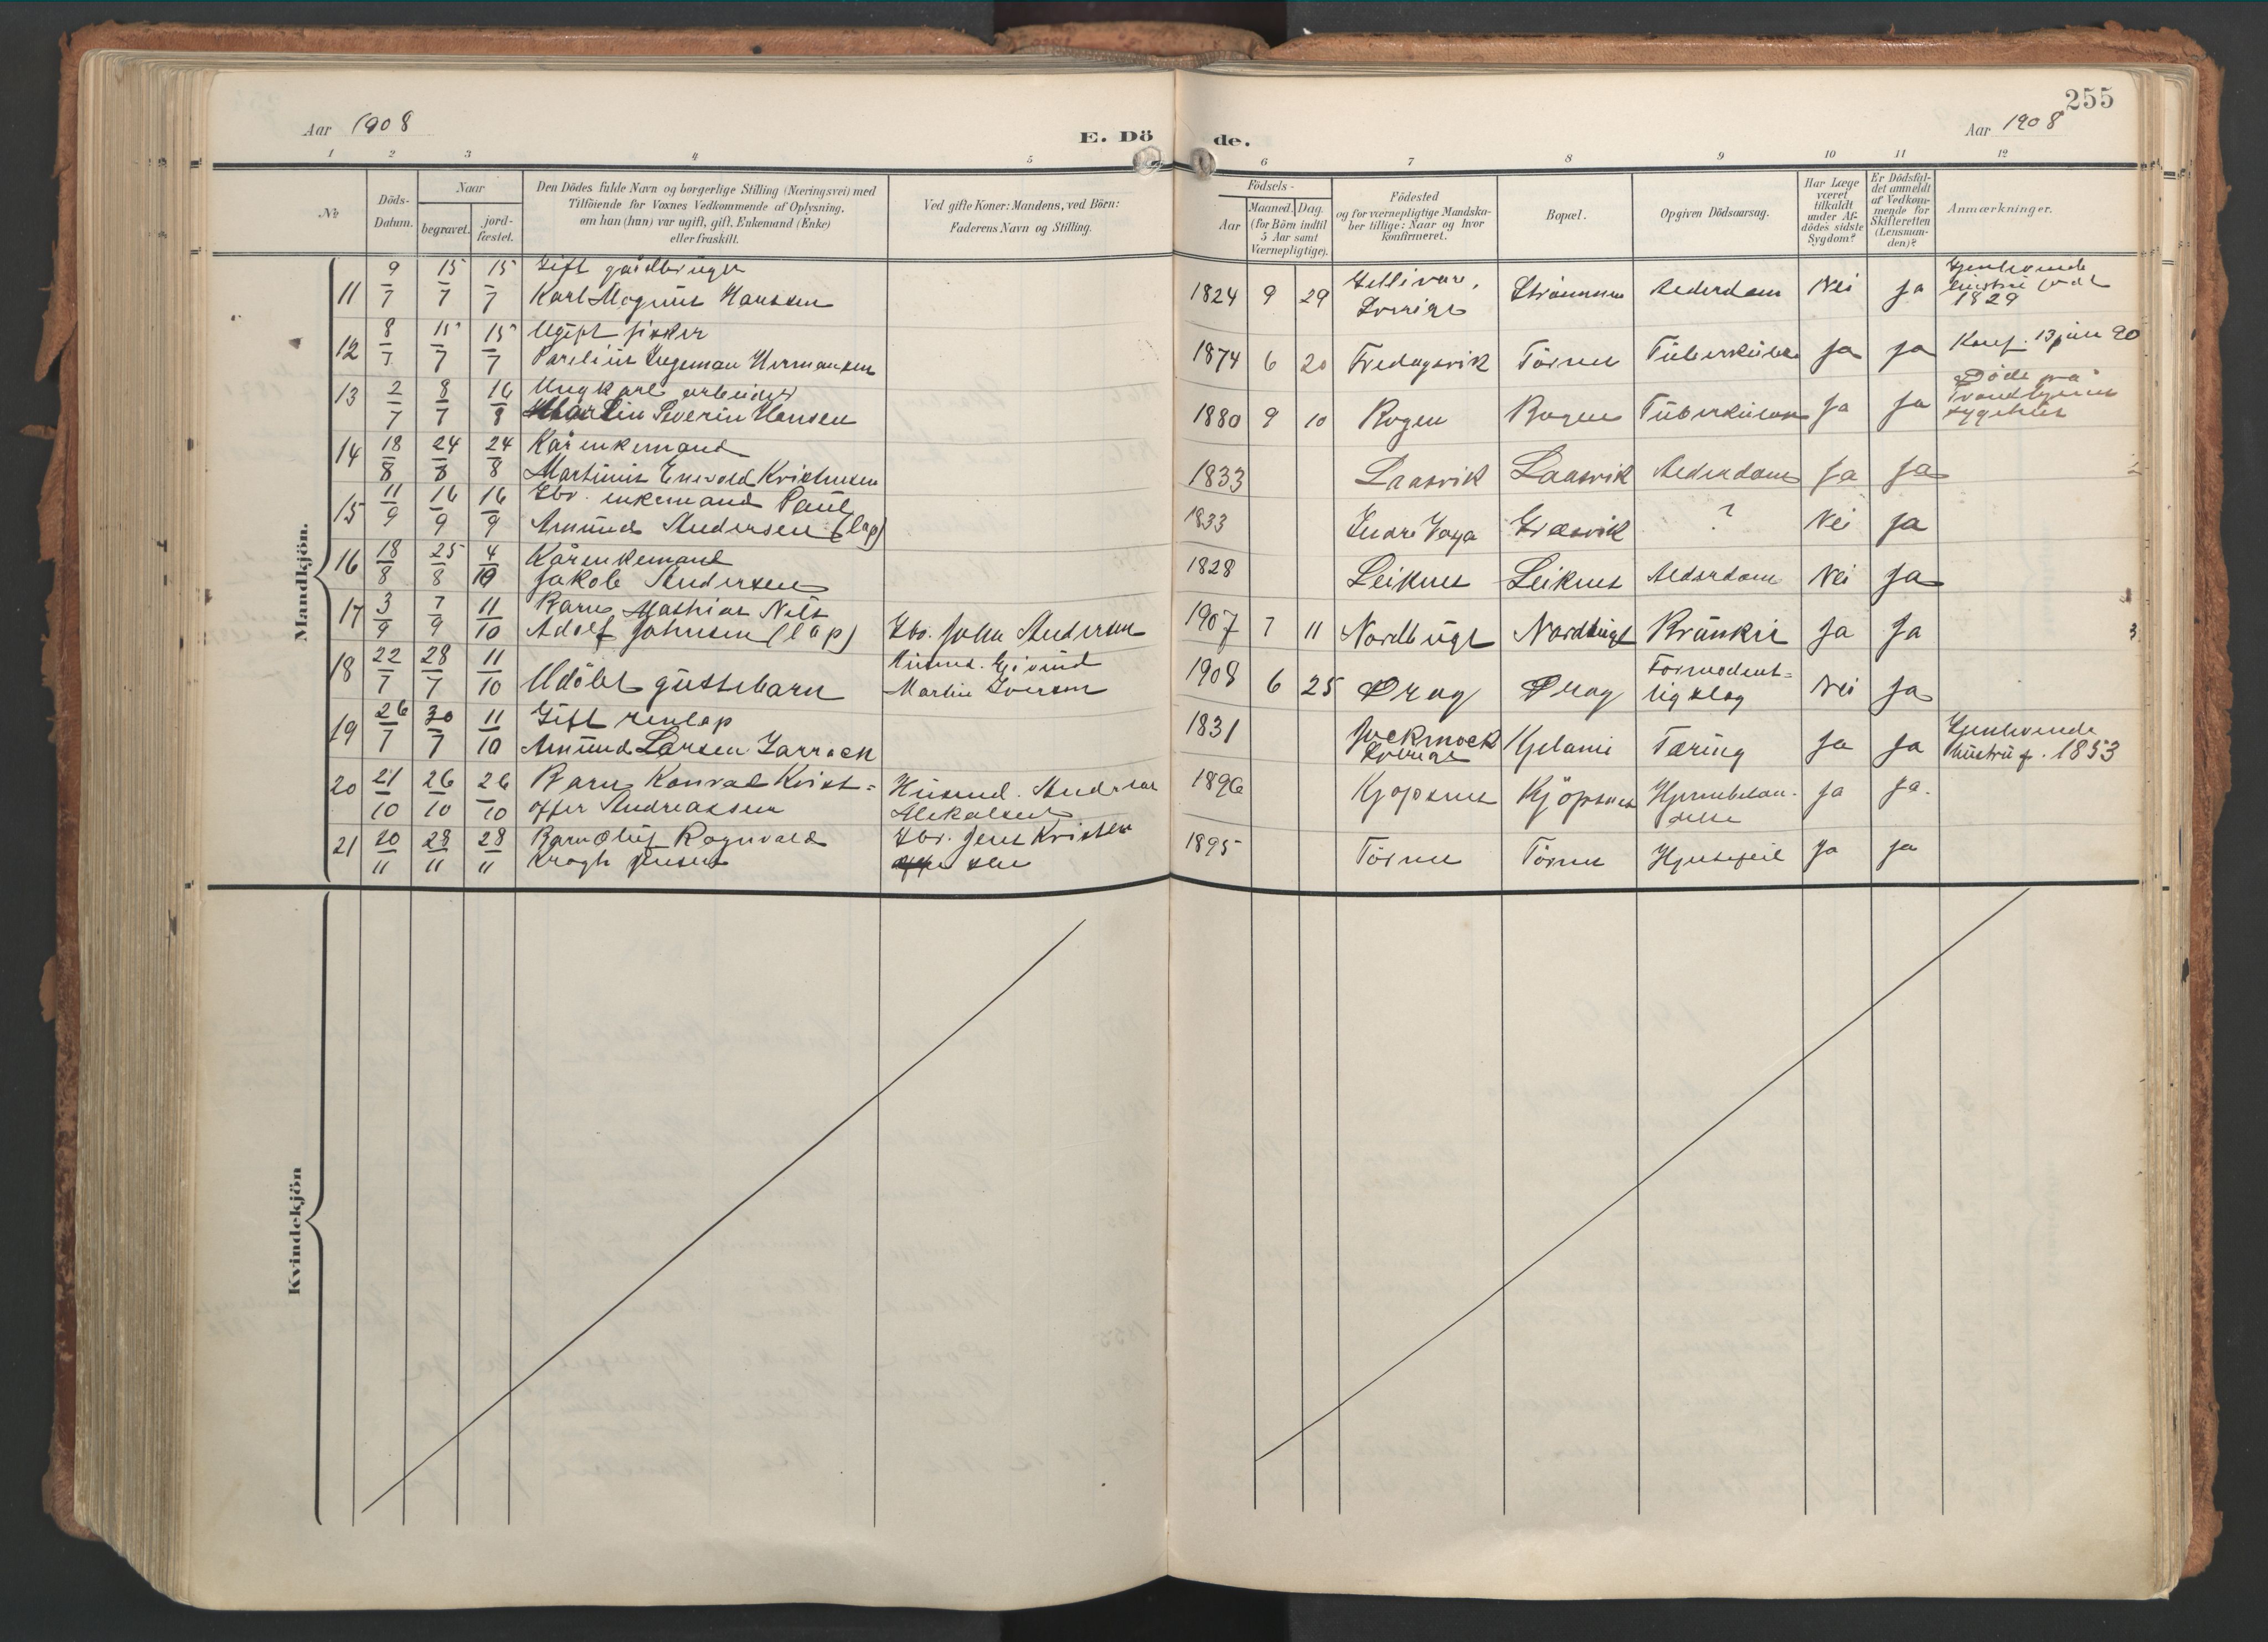 255
Aar 1908
E. Dö de.
Aar 1908
1 2 3 4 5 6 7 8 9 10 11 12
№
Döds-
Datum.
Naar
begravet.
jord-
fæstet.
Den Dödes fulde Navn og borgerlige Stilling (Næringsvei) med
Tilföiende for Voxnes Vedkommende af Oplysning,
om han (hun) var ugift, gift, Enkemand (Enke)
eller fraskilt.
Ved gifte Koner: Mandens, ved Börn:
Faderens Navn og Stilling.
Födsels-
Aar
Maaned. Dag.
(for Börn indtil
5 Aar samt
Værnepligtige).
Födested
og for værnepligtige Mandska-
ber tillige: Naar og hvor
konfirmeret.
Bopæl.
Opgiven Dödsaarsag.
Har Læge
været
tilkaldt
under Af-
dödes sidste
Sygdom?
Er Dödsfal-
det anmeldt
af Vedkom-
mende for
Skifteretten
(Lensman-
den)?
Anmærkninger.
Mandkjön.
11 9/7 15/7 15/7 Gift gårdbruger
Karl Magnus Hansen 1824 9 29 Gellivare,
Sverige Strømmen Alderdom Nei Ja Gjenlevende
hustru født
1829
12 8/7 15/7 15/7 Ugift fisker
Parelius Ingeman Hermansen 1874 6 20 Fredagsvik Tørnes Tuberkulose Ja Ja Konf. 13 juli 90
13 2/7 8/7 16/8 Ungkarl arbeider
Martin Severin Hansen 1880 9 10 Rogen Rogen Tuberkulose Ja Ja Døde på
Trondhjems
sygehus
14 18/8 24/8 24/8 Kårenkemand
Martinus Enevold Kristensen 1833 Laasvik Laasvik Alderdom Ja Ja
15 11/9 16/9 16/9 Gbr. enkemand Paul
Amund Andersen (lap) 1833 Indre Græsvik ? Nei Ja
16 18/8 25/8 4/10 Kårenkemand
Jakob Andersen 1828 Leiknes Leiknes Alderdom Nei Ja
17 3/9 7/9 11/10 Barn Mathias Nils
Adolf Johnsen (lap) Gbr. John Andersen 1907 7 11 Nordbugt Nordbugt Bronkit Ja Ja
18 22/7 28/7 11/10 Udøbt guttebarn Husmd. Eivind
Martin Iversen 1908 6 25 Drag Drag Formodent-
lig slag Nei Ja
19 26/7 30/7 11/10 Gift renlap
Amund Larsen Jarrock 1831 Jockmock
Sverige Tæring Ja Ja Gjenlevende
hustru f. 1853
20 21/10 26/10 26/10 Barn Konrad Krist-
offer Andreassen Husmd. Andreas
1896 Kjøpsnes Kjöpsnes Hjernebetæn-
delse Ja Ja.
21 20/11 28/11 28/11 Barn Oluf Ragnvald
Krogh Jensen Gbr. Jens Kristen
sen 1895 Tørnes Tørnes Hjertefeil Ja Ja
Kvindekjön